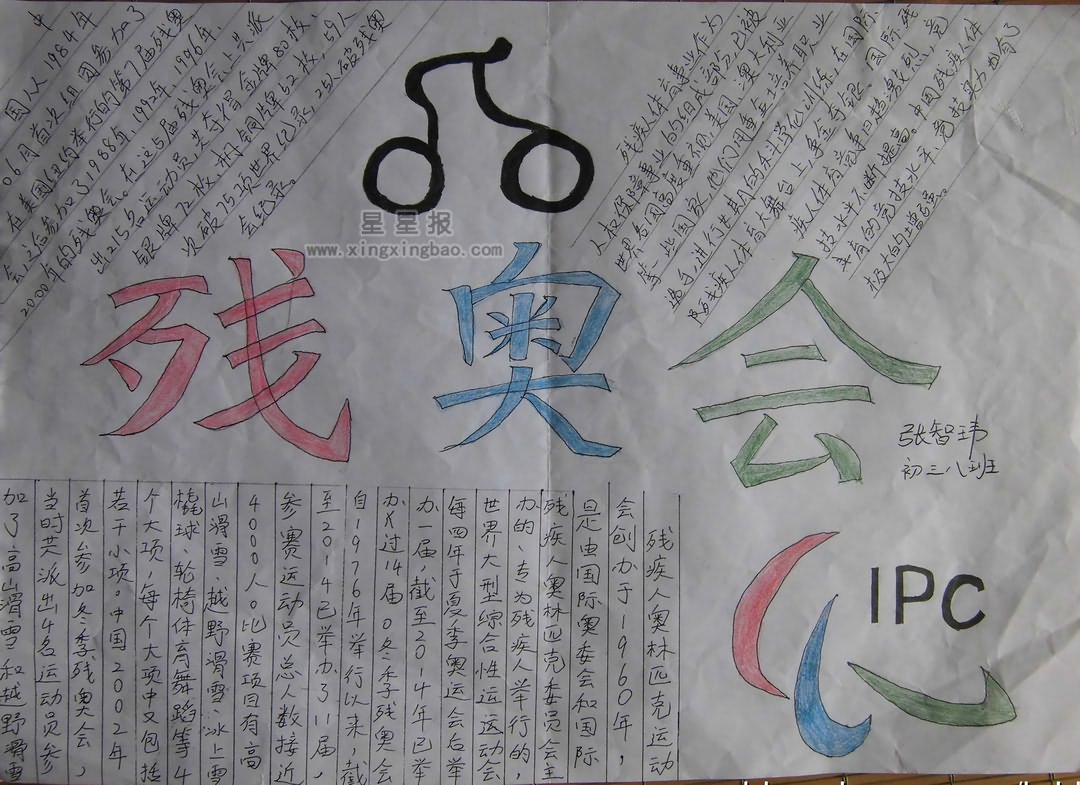 中
国人1984年
06月首次组团参加了
在美国纽约举行的第7届残奥
会,之后参加了1988年,1992年,1996年,
2000年的残奥会。在这5届残奥会上共派
出215名运动员,共夺得金牌80枚,
银牌72枚,铜牌52枚,59人
次破25项世界纪录,25次破残奥
会纪录。
残疾人体育事业作为
人权保障事业的组成部分,已被
世界各国高度重视,美国、奥大利亚
等一些国家,他们用重金培养职业
选手,进行长期的强化训练,在国际
残疾人体育大舞台上,争金夺银。国际残
疾人体育竞争日趋激烈,竞
技水平不断提高。中国残疾人体
育的竞技水平、竞技实力也有了
极大的增强。
星星报
www.xingxingbao.com
残奥会
张智玮
初三八班
残疾人奥林匹克运动
会创办于1960年,
是由国际奥委会和国际
残疾人奥林匹克委员会主
办的、专为残疾人举行的,
世界大型综合性运运动会
每四年于夏季奥运会后举
办一届,截至2014年已举
办过14届。冬季残奥会
自1976年举行以来,截
至2014已举办了11届,
参赛运动员总人数接近
4000人。比赛项目有高
山滑雪、越野滑雪、冰上雪
橇球、轮椅体育舞蹈等4
个大项,每个大项中又包括
若干小项。中国2002年
首次参加冬季残奥会,
当时共派出4名运动员参
加了高山滑雪和越野滑雪
IPC